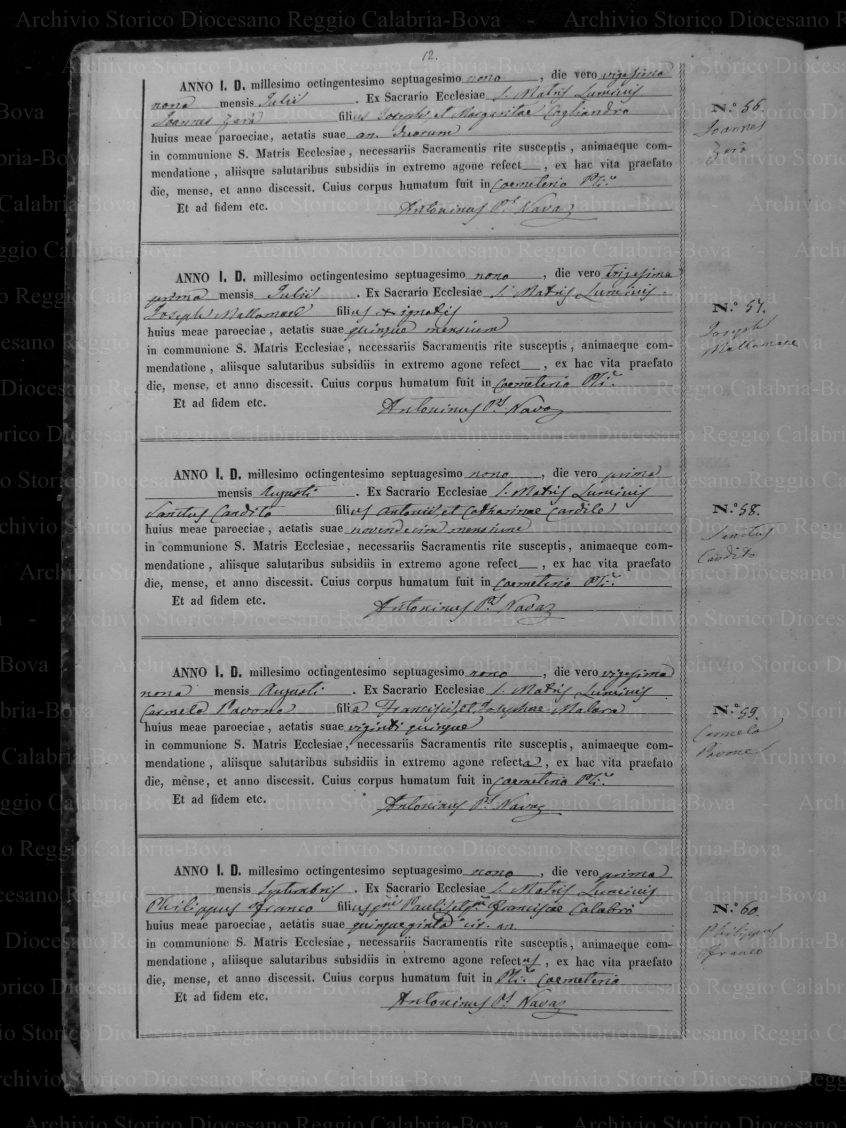 12.
ANNO I. D. millesimo octingentesimo septuagesimo nono, die vero vigesima
nona mensis Julii. Ex Sacrario Ecclesiae S. Matris Luminis
Joannes Zera filius Joseph et Margaritae Cogliandro
huius meae paroeciae, aetatis suae an. duorum
in communione S. Matris Ecclesiae, necessariis Sacramentis rite susceptis, animaeque com-
mendatione, aliisque salutaribus subsidiis in extremo agone refect__, ex hac vita praefato
die, mense, et anno discessit. Cuius corpus humatum fuit in Coemeterio Pli.º
Et ad fidem etc. Antoninus P.s Nava
N.º 56.
Joannes
Zera
ANNO I. D. millesimo octingentesimo septuagesimo nono, die vero trigesima
prima mensis Julii. Ex Sacrario Ecclesiae S. Matris Luminis.
Joseph Mallamace filius ex ignotis
huius meae paroeciae, aetatis suae quinque mensium
in communione S. Matris Ecclesiae, necessariis Sacramentis rite susceptis, animaeque com-
mendatione, aliisque salutaribus subsidiis in extremo agone refect__, ex hac vita praefato
die, mense, et anno discessit. Cuius corpus humatum fuit in Coemeterio Pli.º
Et ad fidem etc. Antoninus P.s Nava
N.º 57.
Joseph
Mallamace
ANNO I. D. millesimo octingentesimo septuagesimo nono, die vero prima
mensis Augusti. Ex Sacrario Ecclesiae S. Matris Luminis
Sanctus Cardito filius Antonii et Catharinae Cardile
huius meae paroeciae, aetatis suae novendecim mensium
in communione S. Matris Ecclesiae, necessariis Sacramentis rite susceptis, animaeque com-
mendatione, aliisque salutaribus subsidiis in extremo agone refect__, ex hac vita praefato
die, mense, et anno discessit. Cuius corpus humatum fuit in Coemeterio Pli.º
Et ad fidem etc. Antoninus P.s Nava
N.º 58.
Sanctus
Cardito
ANNO I. D. millesimo octingentesimo septuagesimo nono, die vero vigesima
nona mensis Augusti. Ex Sacrario Ecclesiae S. Matris Luminis
Carmela Pavone filia Francisci, et Josephae Malara
huius meae paroeciae, aetatis suae viginti quinque
in communione S. Matris Ecclesiae, necessariis Sacramentis rite susceptis, animaeque com-
mendatione, aliisque salutaribus subsidiis in extremo agone refecta, ex hac vita praefato
die, mense, et anno discessit. Cuius corpus humatum fuit in Coemeterio Pli.º
Et ad fidem etc. Antoninus P.s Nava
N.º 59.
Carmela
Pavone
ANNO I. D. millesimo octingentesimo septuagesimo nono, die vero prima
mensis Septembris. Ex Sacrario Ecclesiae S. Matris Luminis
Philippus Franco filius qm Pauli, et qm Franciscae Calabrò
huius meae paroeciae, aetatis suae quinquaginta cir. an.
in communione S. Matris Ecclesiae, necessariis Sacramentis rite susceptis, animaeque com-
mendatione, aliisque salutaribus subsidiis in extremo agone refectus, ex hac vita praefato
die, mense, et anno discessit. Cuius corpus humatum fuit in Pli.º Coemeterio
Et ad fidem etc. Antoninus P.s Nava
N.º 60.
Philippus
Franco